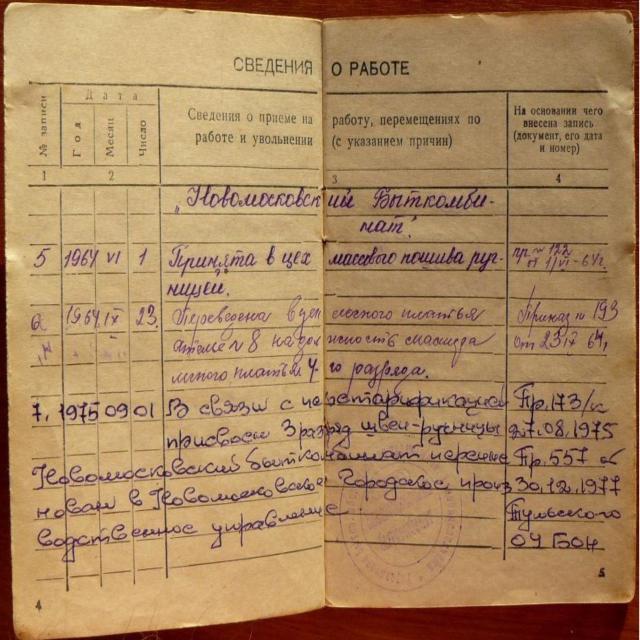 СВЕДЕНИЯ О РАБОТЕ
№ записи
Дата
Год
Месяц
Число
Сведения о приеме на работу, перемещениях по
работе и увольнении (с указанием причин)
На основании чего
внесена запись
(документ, его дата
и номер)
1 2 3 4
„Новомосковский Быткомби-
нат."
5 1964 VI 1 Принята в цех массового пошива руч- пр. № 122
ницей. от 1/VI-64г.
6 1964 IX 23 Переведена в цех легкого платья Приказ № 193
ателье № 8 на должность мастера от 64г.
легкого платья 4-го разряда.
7. 1975 09 01 В связи с перетарификацией Пр. 173/к
присвоен 3 разряд швеи-ручницы 27.08.1975
Новомосковский быткомбинат переиме Пр. 557 об
нован в Новомосковское Городское произ 30.12.1977
водственное управление Тульского
ОУБОН
4 5